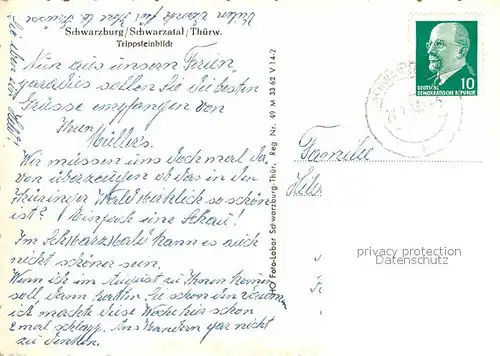 Vielen Dank für Ihre l. Grüsse
Schwarzburg/Schwarzatal/Thürw.
Trippsteinblick
Nun aus unserm Ferien
paradies sollen Sie die besten
Grüsse empfangen von
Ihren
Müller's.
Wir müssen uns doch mal da
von überzeugen ob das in den
Thüringer Wald wirklich so schön
ist? Einfach eine Schau!
Im Schwarzwald kann es auch
nicht schöner sein.
Wenn ich im August zu Ihnen kommen
soll, dann hatten Sie schon den
ich machte diese Woche schon
2 mal schlapp. Ans Wandern gar nicht
zu denken.
HO Foto-Labor Schwarzburg-Thür. Reg Nr. 49 M 33 62 V 14-2
10
DEUTSCHE
DEMOKRATISCHE REPUBLIK
Familie
privacy protection
www.akpool.de